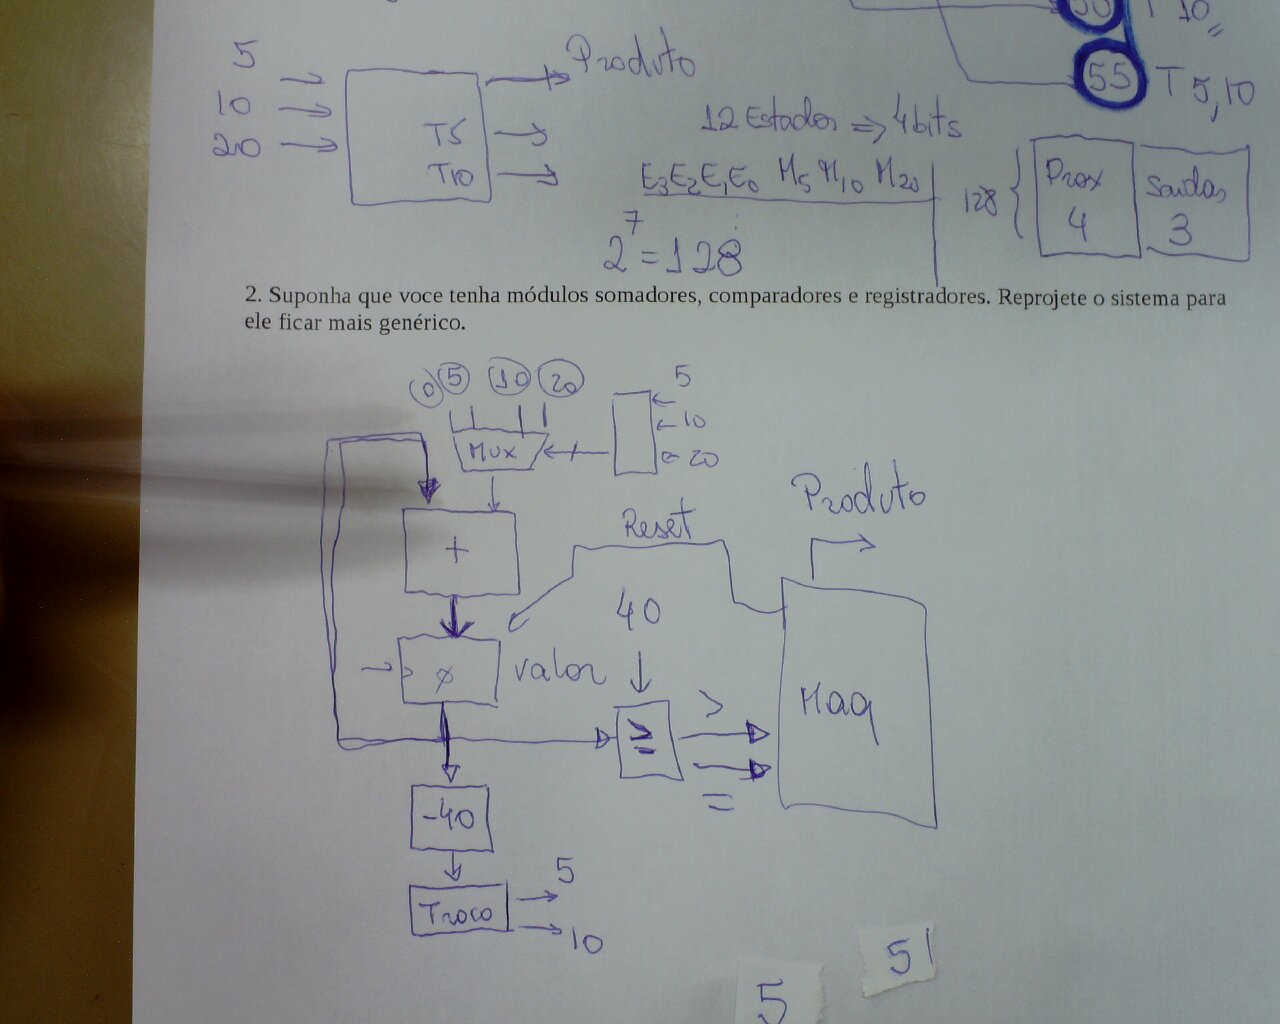 T 10
55 T 5,10
5
10
20
T5
T10
Produto
12 Estados => 4 bits
E3E2E1E0 M5 M10 M20
2^7 = 128
128 { Prox 4 Saidas 3
2. Suponha que voce tenha módulos somadores, comparadores e registradores. Reprojete o sistema para
ele ficar mais genérico.
0 5 10 20
MUX
5
10
20
+
Reset
Produto
40
valor
≥
>
=
Maq
-40
Troco
5
10
51
5